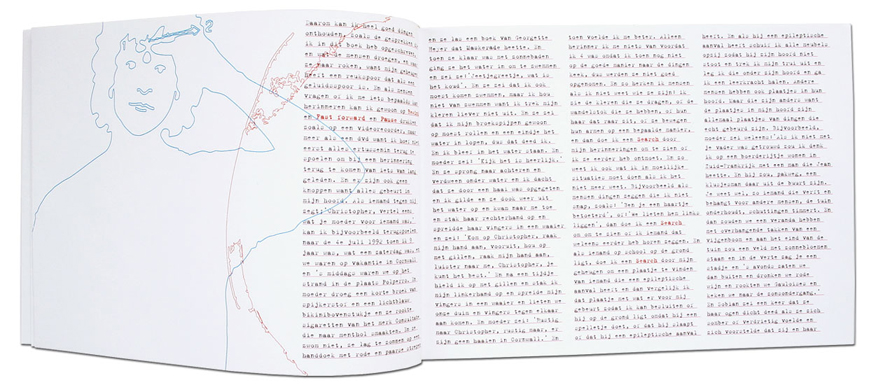 Daarom kan ik heel goed dingen
onthouden, zoals de gesprekken
ik in dit boek heb opgeschreven
en wat de mensen droegen, en
ze naar roken, want mijn geheugen
heeft een reukspoor dat als een
geluidsspoor is. En als mensen
vragen of ik me iets bepaalds kan
herinneren kan ik gewoon op
en Fast Forward en Pauze drukken
zoals op een videorecorder, maar
meer als een dvd want ik hoef niet
eerst alles ertussenin terug te
spoelen om bij een herinnering
terug te komen van iets van lang
geleden. En er zijn ook geen
knoppen want alles gebeurt in
mijn hoofd. Als iemand tegen mij
zegt: Christopher, vertel eens
wat je moeder voor iemand was,
kan ik bijvoorbeeld terugspoelen
naar de 4e juli 1992 toen ik 9
jaar was, wat een zaterdag was, en
we waren op vakantie in Cornwall
en 's middags waren we op het
strand in de plaats Polperro. En
moeder droeg een korte broek van
spijkerstof en een lichtblauw
bikinibovenstukje en ze rookte
sigaretten van het merk Consulate
die naar menthol smaakten. En ze
zwom niet, ze lag te zonnen op een
handdoek met rode en paarse strepen
en de las een boek van Georgette
Heyer dat Maskerade heette. En
toen ze klaar was met zonnebaden
ging ze het water in om te zwemmen
en zei ze: 'Jeetjegreetje, wat is
het koud.' En ze zei dat ik ook
moest komen zwemmen, maar ik hou
niet van zwemmen want ik trek mijn
kleren liever niet uit. En ze zei
dat ik mijn broekspijpen gewoon
op moest rollen en een eindje het
water in lopen, dus dat deed ik.
En ik bleef in het water staan. En
moeder zei: 'Kijk het is heerlijk.'
En ze sprong naar achteren en
verdween onder water en ik dacht
dat ze door een haai was opgegeten
en ik gilde en ze dook weer uit
het water op en kwam naar me toe
en stak haar rechterhand op en
spreidde haar vingers in een waaier
en zei: 'Kom op Christopher, raak
mijn hand aan. Vooruit, hou op
met gillen, raak mijn hand aan,
luister naar me, Christopher, je
kunt het best.' En na een tijdje
hield ik op met gillen en stak ik
mijn linkerhand op en spreidde mijn
vingers in een waaier en lieten we
onze duim en vingers tegen elkaar
aan komen. En moeder zei: 'Rustig
maar Christopher, rustig maar, er
zijn geen haaien in Cornwall.' En
toen voelde ik me beter. Alleen
herinner ik me niets van voordat
ik 4 was omdat ik toen nog niet
op de goede manier naar de dingen
keek, dus werden ze niet goed
opgenomen. En zo herken ik mensen
als ik niet weet wie ze zijn: ik
zie de kleren die ze dragen, of de
wandelstok die ze hebben, of hun
haar dat raar zit, of ze bewegen
hun armen op een bepaalde manier,
en dan doe ik een Search door
mijn herinneringen om te zien of
ik ze eerder heb ontmoet. En zo
weet ik ook wat ik in moeilijke
situaties moet doen als ik het
niet meer weet. Bijvoorbeeld als
mensen dingen zeggen die ik niet
snap, zoals: 'Ben je een haartje
betoeterd', of: 'We lieten hem links
liggen', dan doe ik een Search
om om te zien of ik iemand dat
weleens eerder heb horen zeggen. En
als iemand op school op de grond
ligt, doe ik een Search door mijn
geheugen om een plaatje te vinden
van iemand die een epileptische
aanval heeft en dan vergelijk ik
dat plaatje met wat er voor mij
gebeurt zodat ik kan besluiten of
hij op de grond ligt omdat hij een
spelletje doet, of dat hij slaapt
of dat hij een epileptische aanval
heeft. En als hij een epileptische
aanval heeft schuif ik alle meubels
opzij zodat hij zijn hoofd niet
stoot en trek ik mijn trui uit en
leg ik die onder zijn hoofd en ga
ik een leerkracht halen. Andere
mensen hebben ook plaatjes in hun
hoofd. Maar die zijn anders want
de plaatjes in mijn hoofd zijn
allemaal plaatjes van dingen die
echt gebeurd zijn. Bijvoorbeeld,
moeder zei weleens: 'Als ik niet met
je Vader was getrouwd zou ik denk
ik op een boerderijtje wonen in
Zuid-Frankrijk met een man die Jean
heette. En hij zou, pakweg, een
klusjesman daar uit de buurt zijn.
Je weet wel, zo iemand die verft en
behangt voor andere mensen, de tuin
onderhoudt, schuttingen timmert. En
dan zouden we een veranda hebben
met overhangende takken van een
vijgenboom en aan het eind van de
tuin zou een veld met zonnebloemen
staan en in de verte zag je een
stadje en 's avonds zaten we
dan buiten en dronken we rode
wijn en rookten we Gauloises en
keken we naar de zonsondergang.'